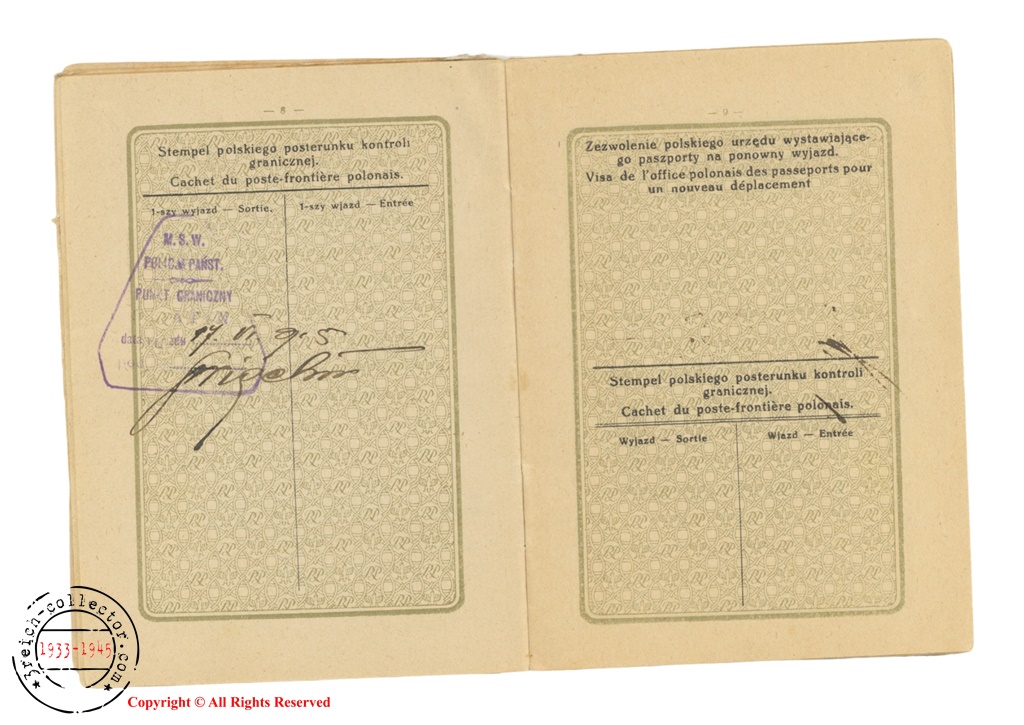 — 8 —
Stempel polskiego posterunku kontroli
granicznej.
Cachet du poste-frontière polonais.
1-szy wyjazd — Sortie.
1-szy wjazd — Entrée
M. S. W.
POLICJA PAŃST.
PUNKT GRANICZNY
17. VI.
— 9 —
Zezwolenie polskiego urzędu wystawiające-
go paszporty na ponowny wyjazd.
Visa de l'office polonais des passeports pour
un nouveau déplacement
Stempel polskiego posterunku kontroli
granicznej.
Cachet du poste-frontière polonais.
Wyjazd — Sortie
Wjazd — Entrée
3reich-collector.com
1933-1945
Copyright © All Rights Reserved